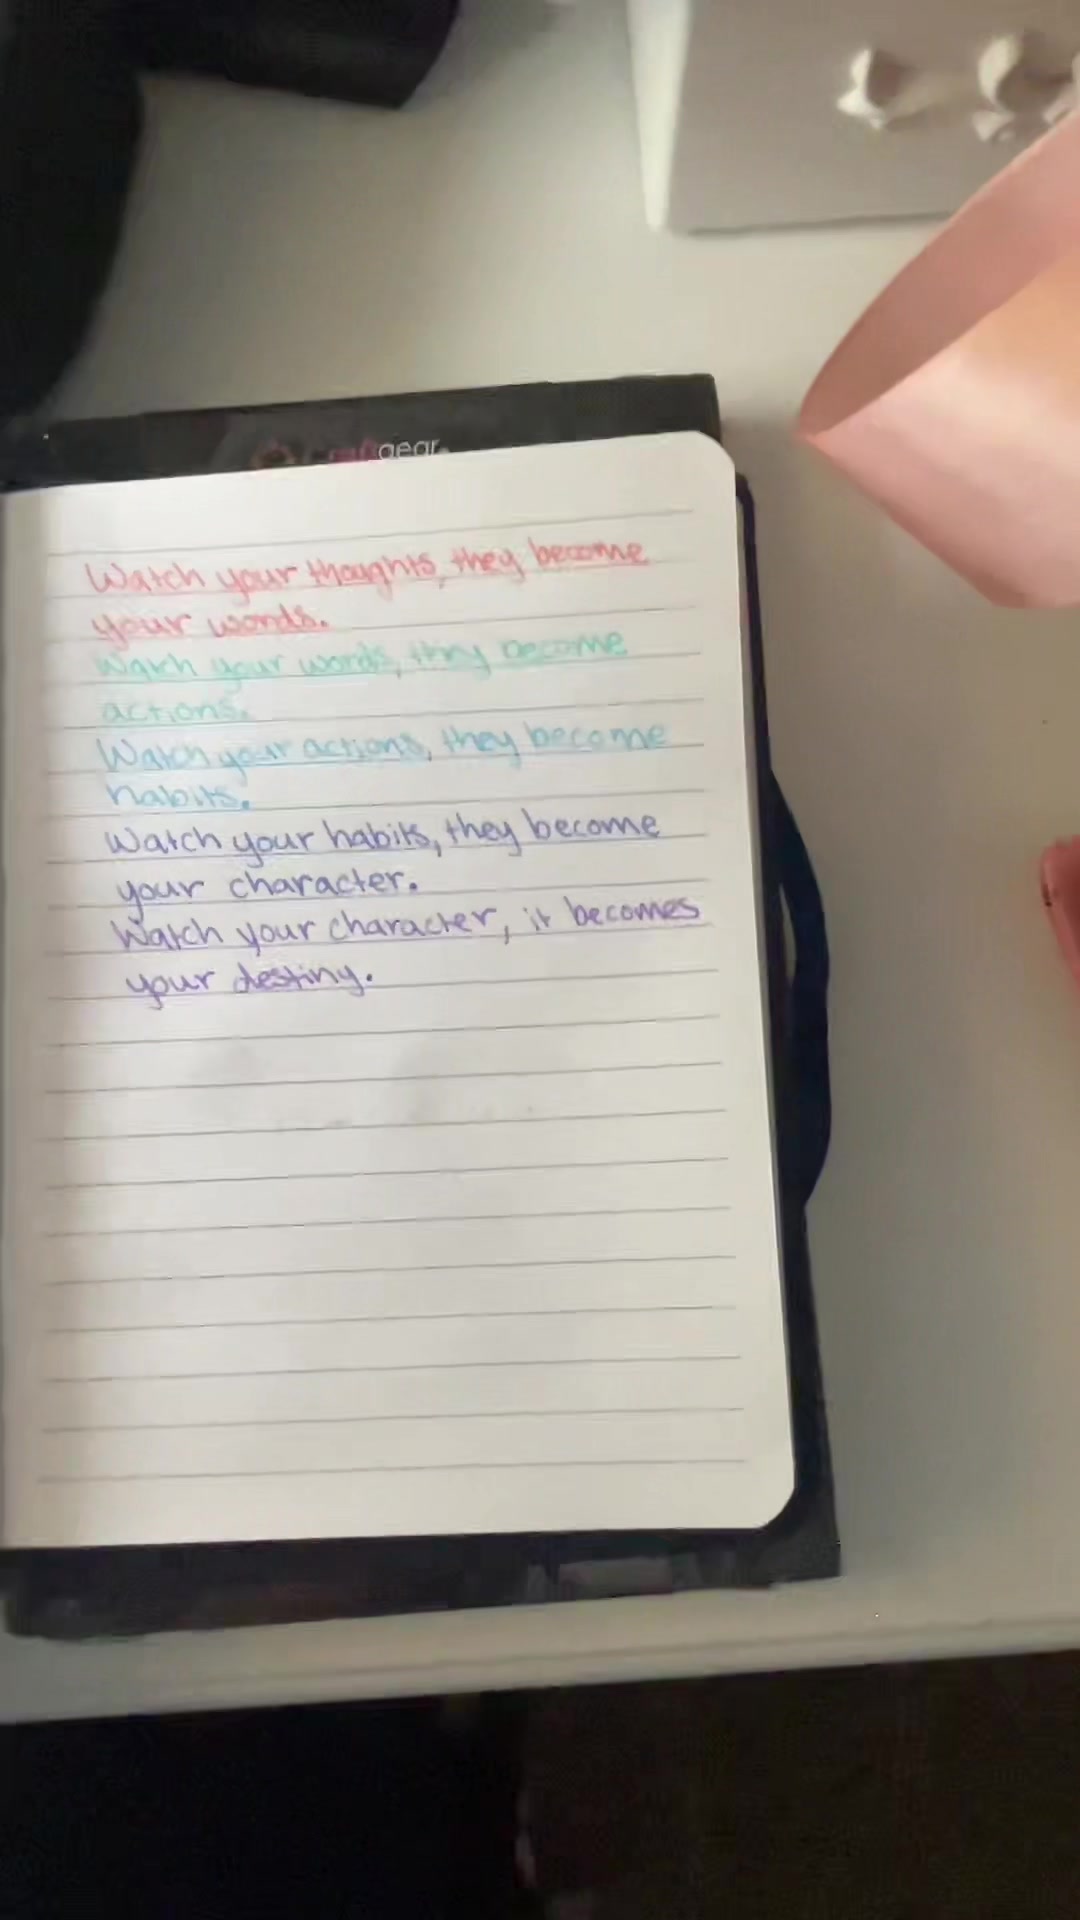 gear
Watch your thoughts, they become
your words.
Watch your words, they become
actions.
Watch your actions, they become
habits.
Watch your habits, they become
your character.
Watch your character, it becomes
your destiny.